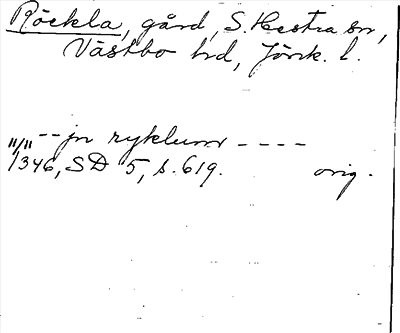 Röckla, gård, S. Hestra sn,
Västbo hd, Jönk. l.
11/11 -- jn ryklumr ----
1346, SD 5, s. 619. orig.